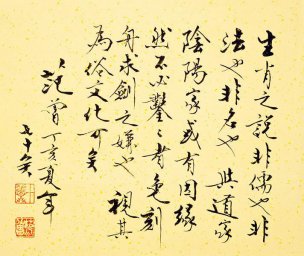 生肖之說非儒也非
法也非名也與道家
陰陽家或有因緣
然不必鑿鑿者免刻
舟求劍之嫌也視其
為俗文化可矣
范曾丁亥夏年
七十矣